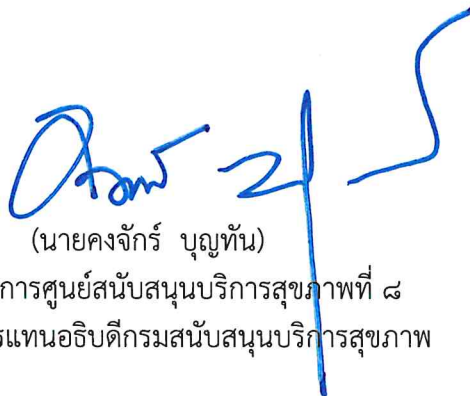 (นายคงจักร์ บุญทัน)
การศูนย์สนับสนุนบริการสุขภาพที่ ๘
แทนอธิบดีกรมสนับสนุนบริการสุขภาพ